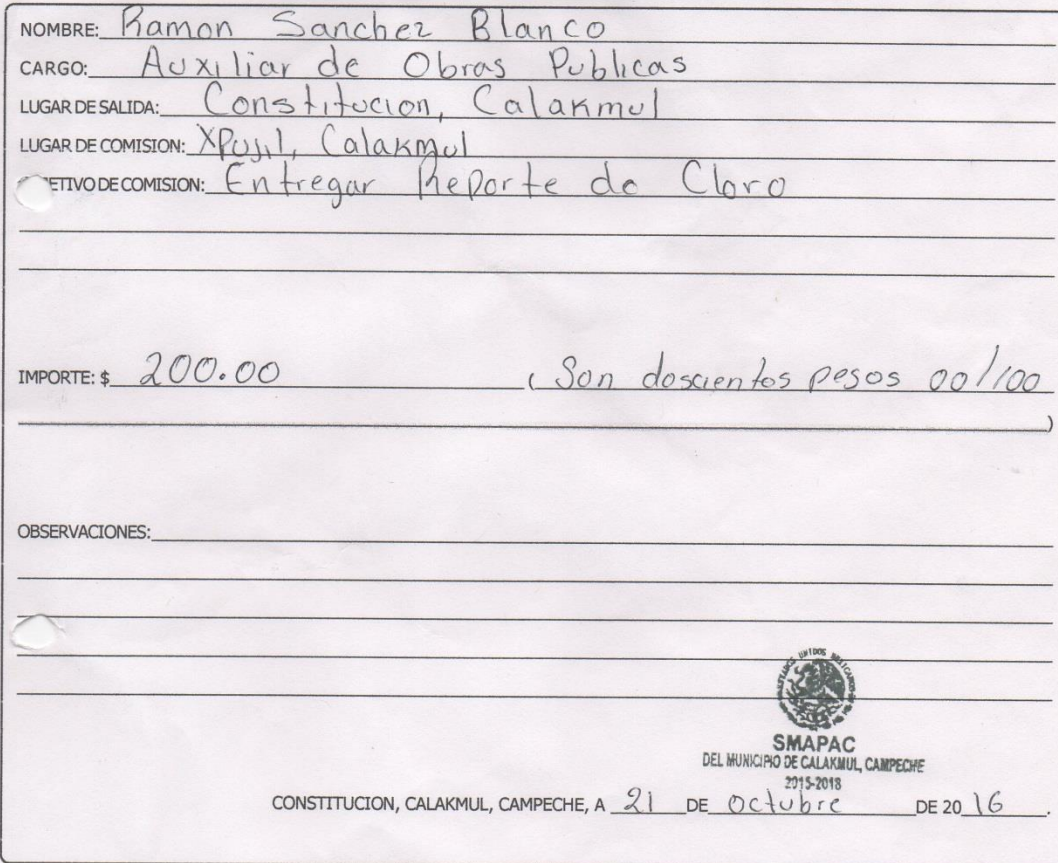 NOMBRE: Ramon Sanchez Blanco
CARGO: Auxiliar de Obras Publicas
LUGAR DE SALIDA: Constitucion, Calakmul
LUGAR DE COMISION: XPujil, Calakmul
ETIVO DE COMISION: Entregar Reporte de Cloro
IMPORTE: $ 200.00 ( Son doscientos pesos 00/100
)
OBSERVACIONES:
UNIDOS MEXICANOS
SMAPAC
DEL MUNICIPIO DE CALAKMUL, CAMPECHE
2015-2018
CONSTITUCION, CALAKMUL, CAMPECHE, A 21 DE Octubre DE 20 16.